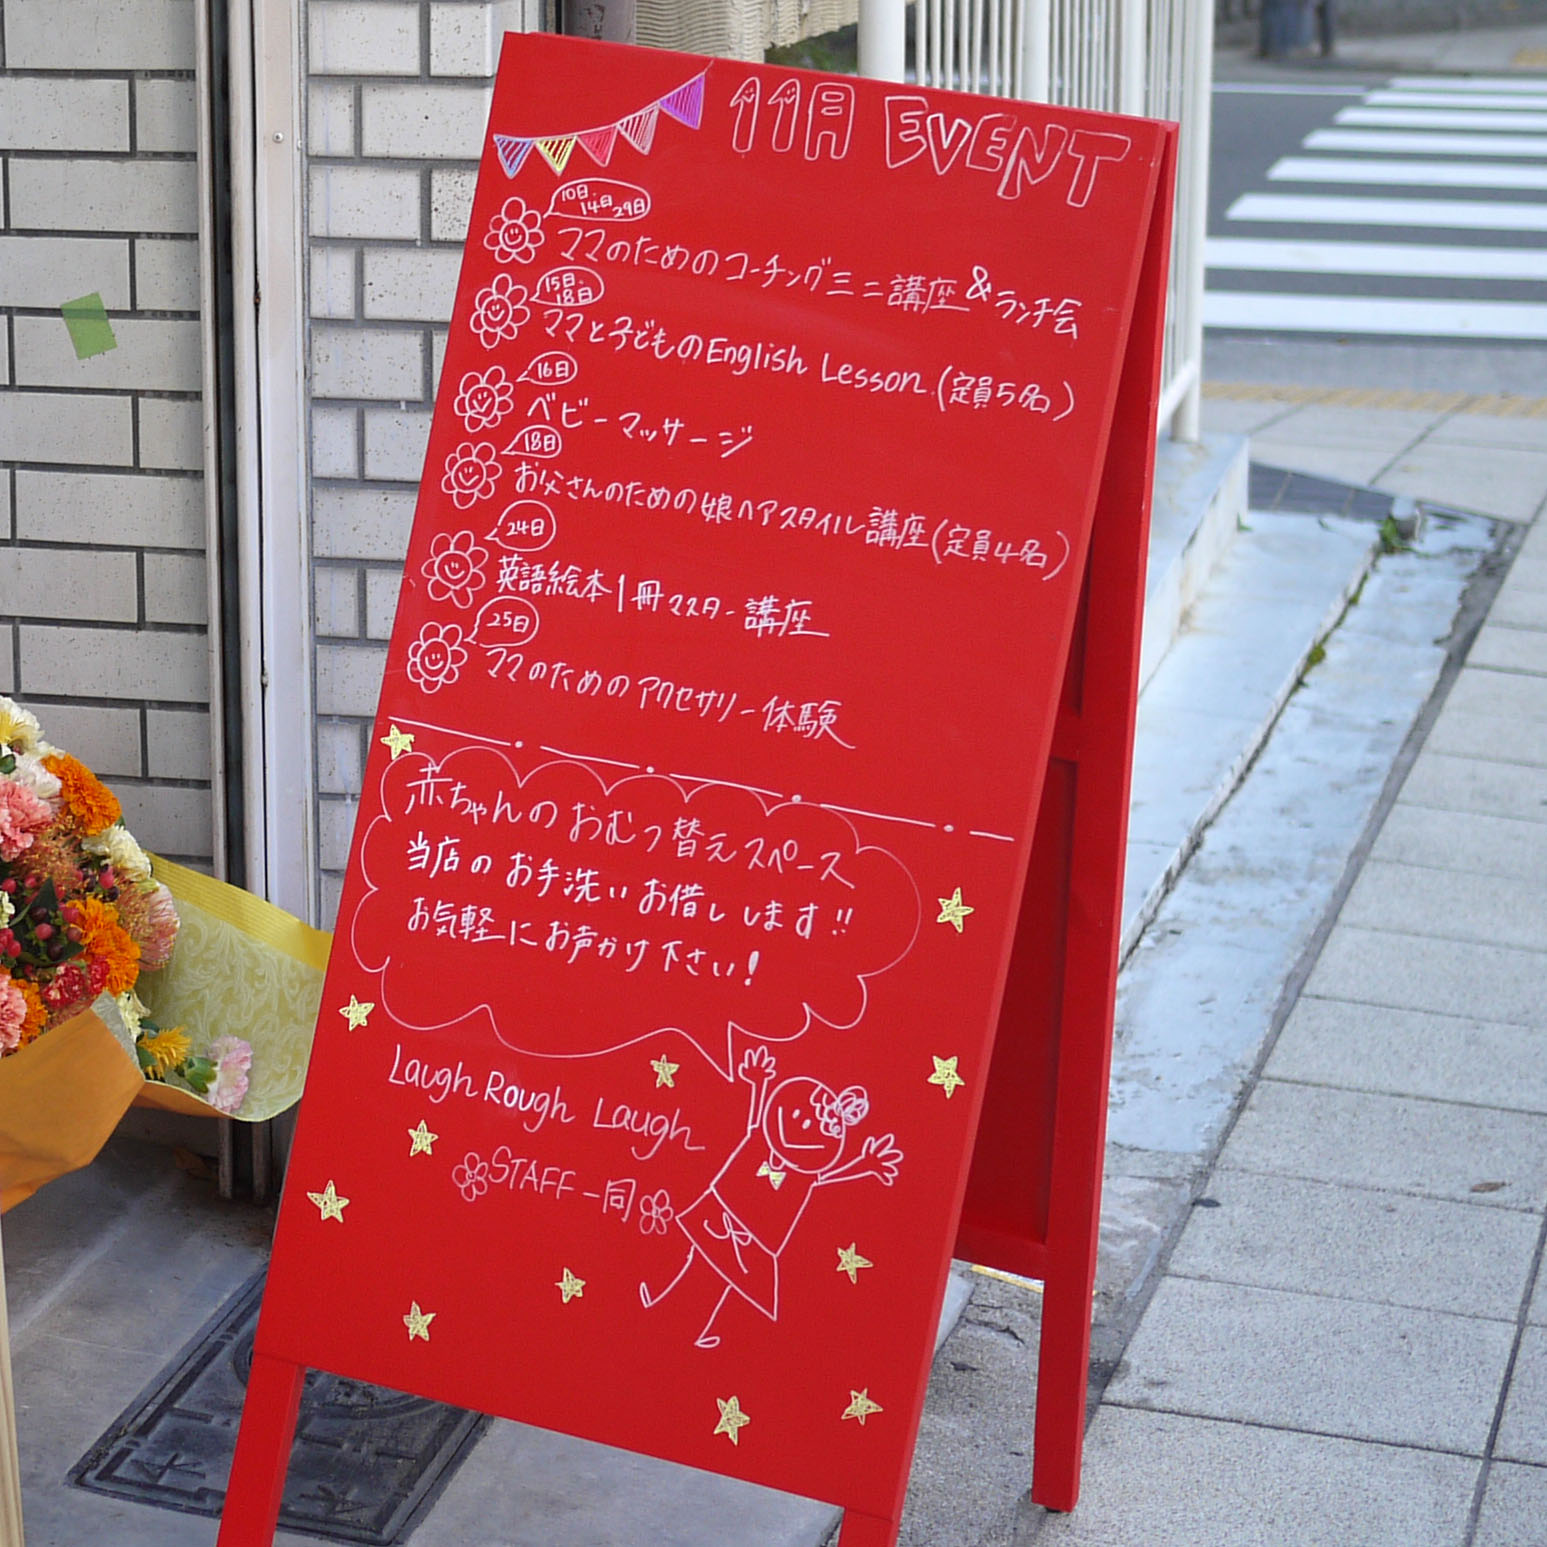 11月 EVENT
10日・14日 29日
ママのためのコーチングミニ講座&ランチ会
15日・18日
ママと子どものEnglish Lesson (定員5名)
16日
ベビーマッサージ
18日
お父さんのための娘ヘアスタイル講座(定員4名)
24日
英語絵本1冊マスター講座
25日
ママのためのアクセサリー体験
赤ちゃんのおむつ替えスペース
当店のお手洗いお借しします!!
お気軽にお声かけ下さい!
Laugh Rough Laugh
STAFF一同